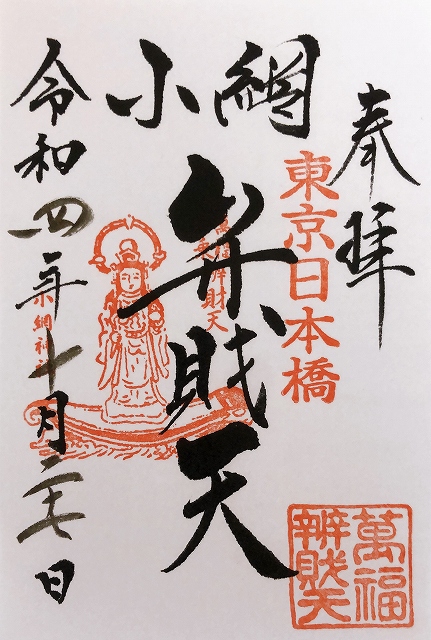 奉拝
東京日本橋
小網
弁財天
辨財天
小網神
令和四年十月二七日
萬福
辨財天